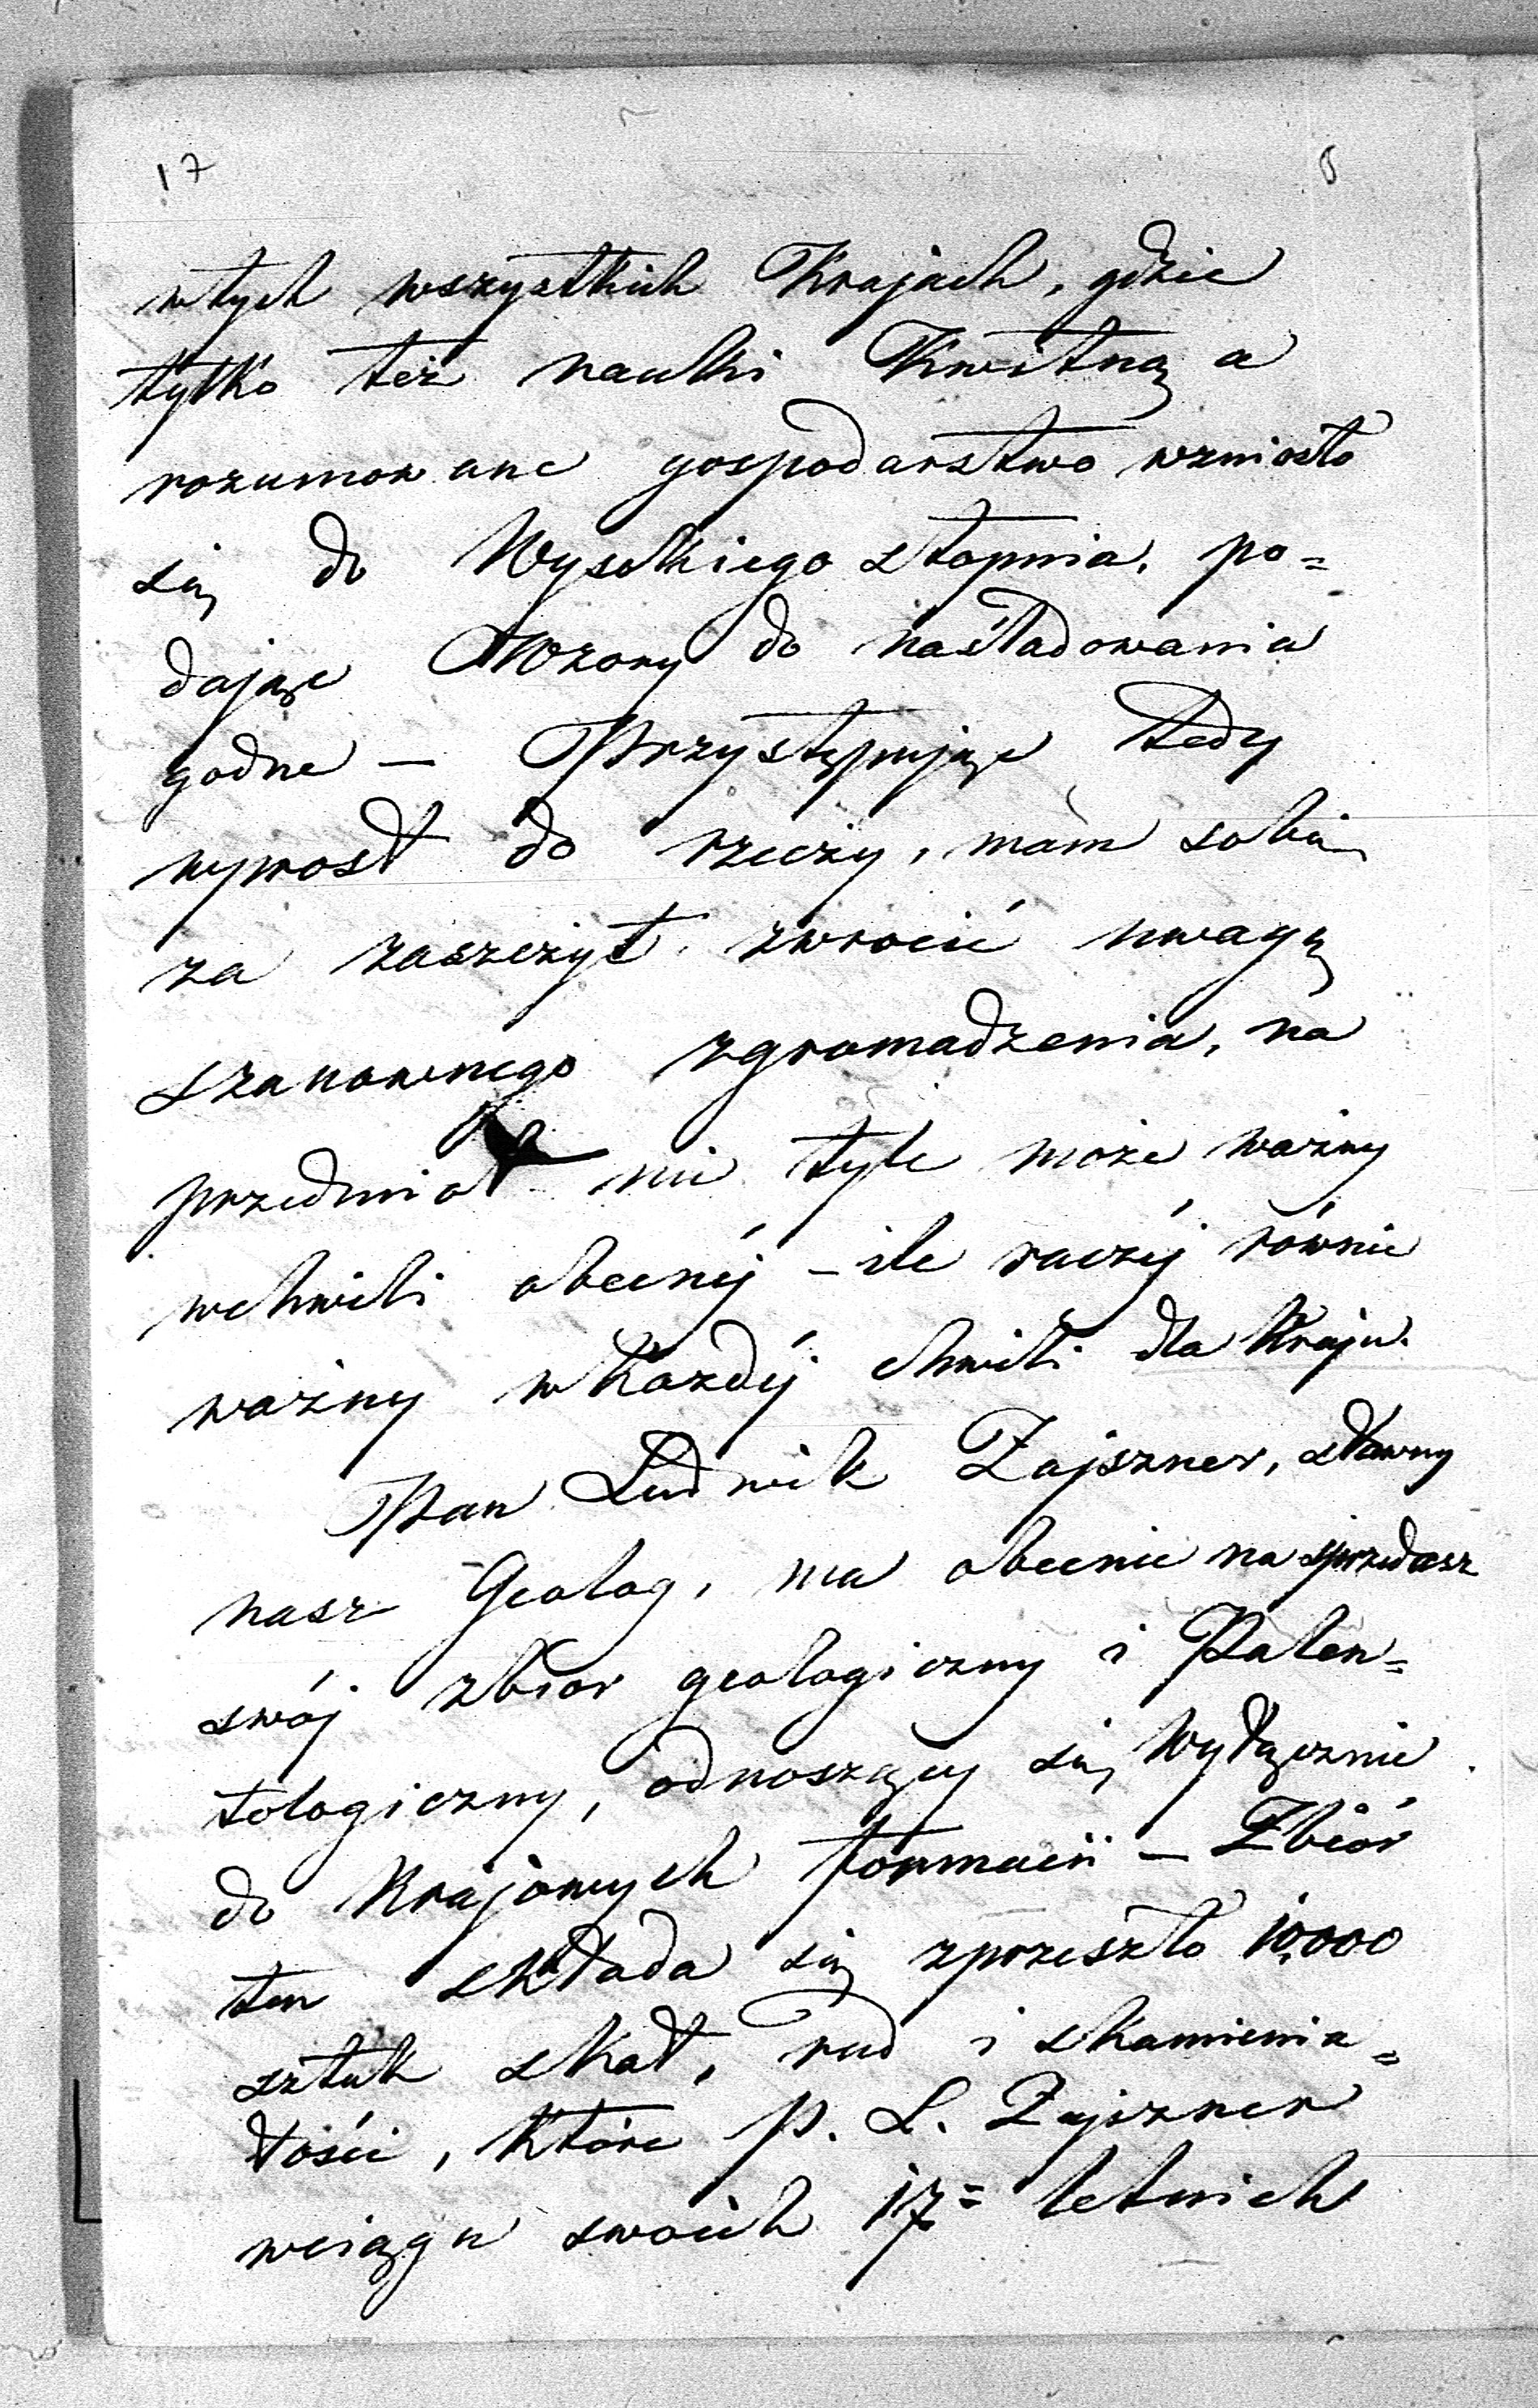 17
wtych wszystkich Krajach, gdzie
tylko też nauki Kwitną a
rozumowane gospodarstwo wzniosło
się do Wysokiego stopnia, po=
dając Wzory do naśladowania
godne — Przystępując tedy
wprost do rzeczy, mam sobie
za zaszczyt, zwrócić uwagę
szanownego zgromadzenia, na
przedmiot nie tyle może ważny
wchwili obecnéj – ile raczéj równie
ważny wKażdéj chwili dla Kraju.
Pan Ludwik Zajszner, sławny
nasz Geolog, ma obecnie na sprzedasz
swój zbior geologiczny i Palen=
tologiczny, odnoszący się Wyłącznie
do Krajowych formacii – Zbiór
ten składa się zprzeszło 10,000
sztuk skał, rud i skamienia=
łości, Które P. L. Zajszner
wciągu swoich 17= letnich